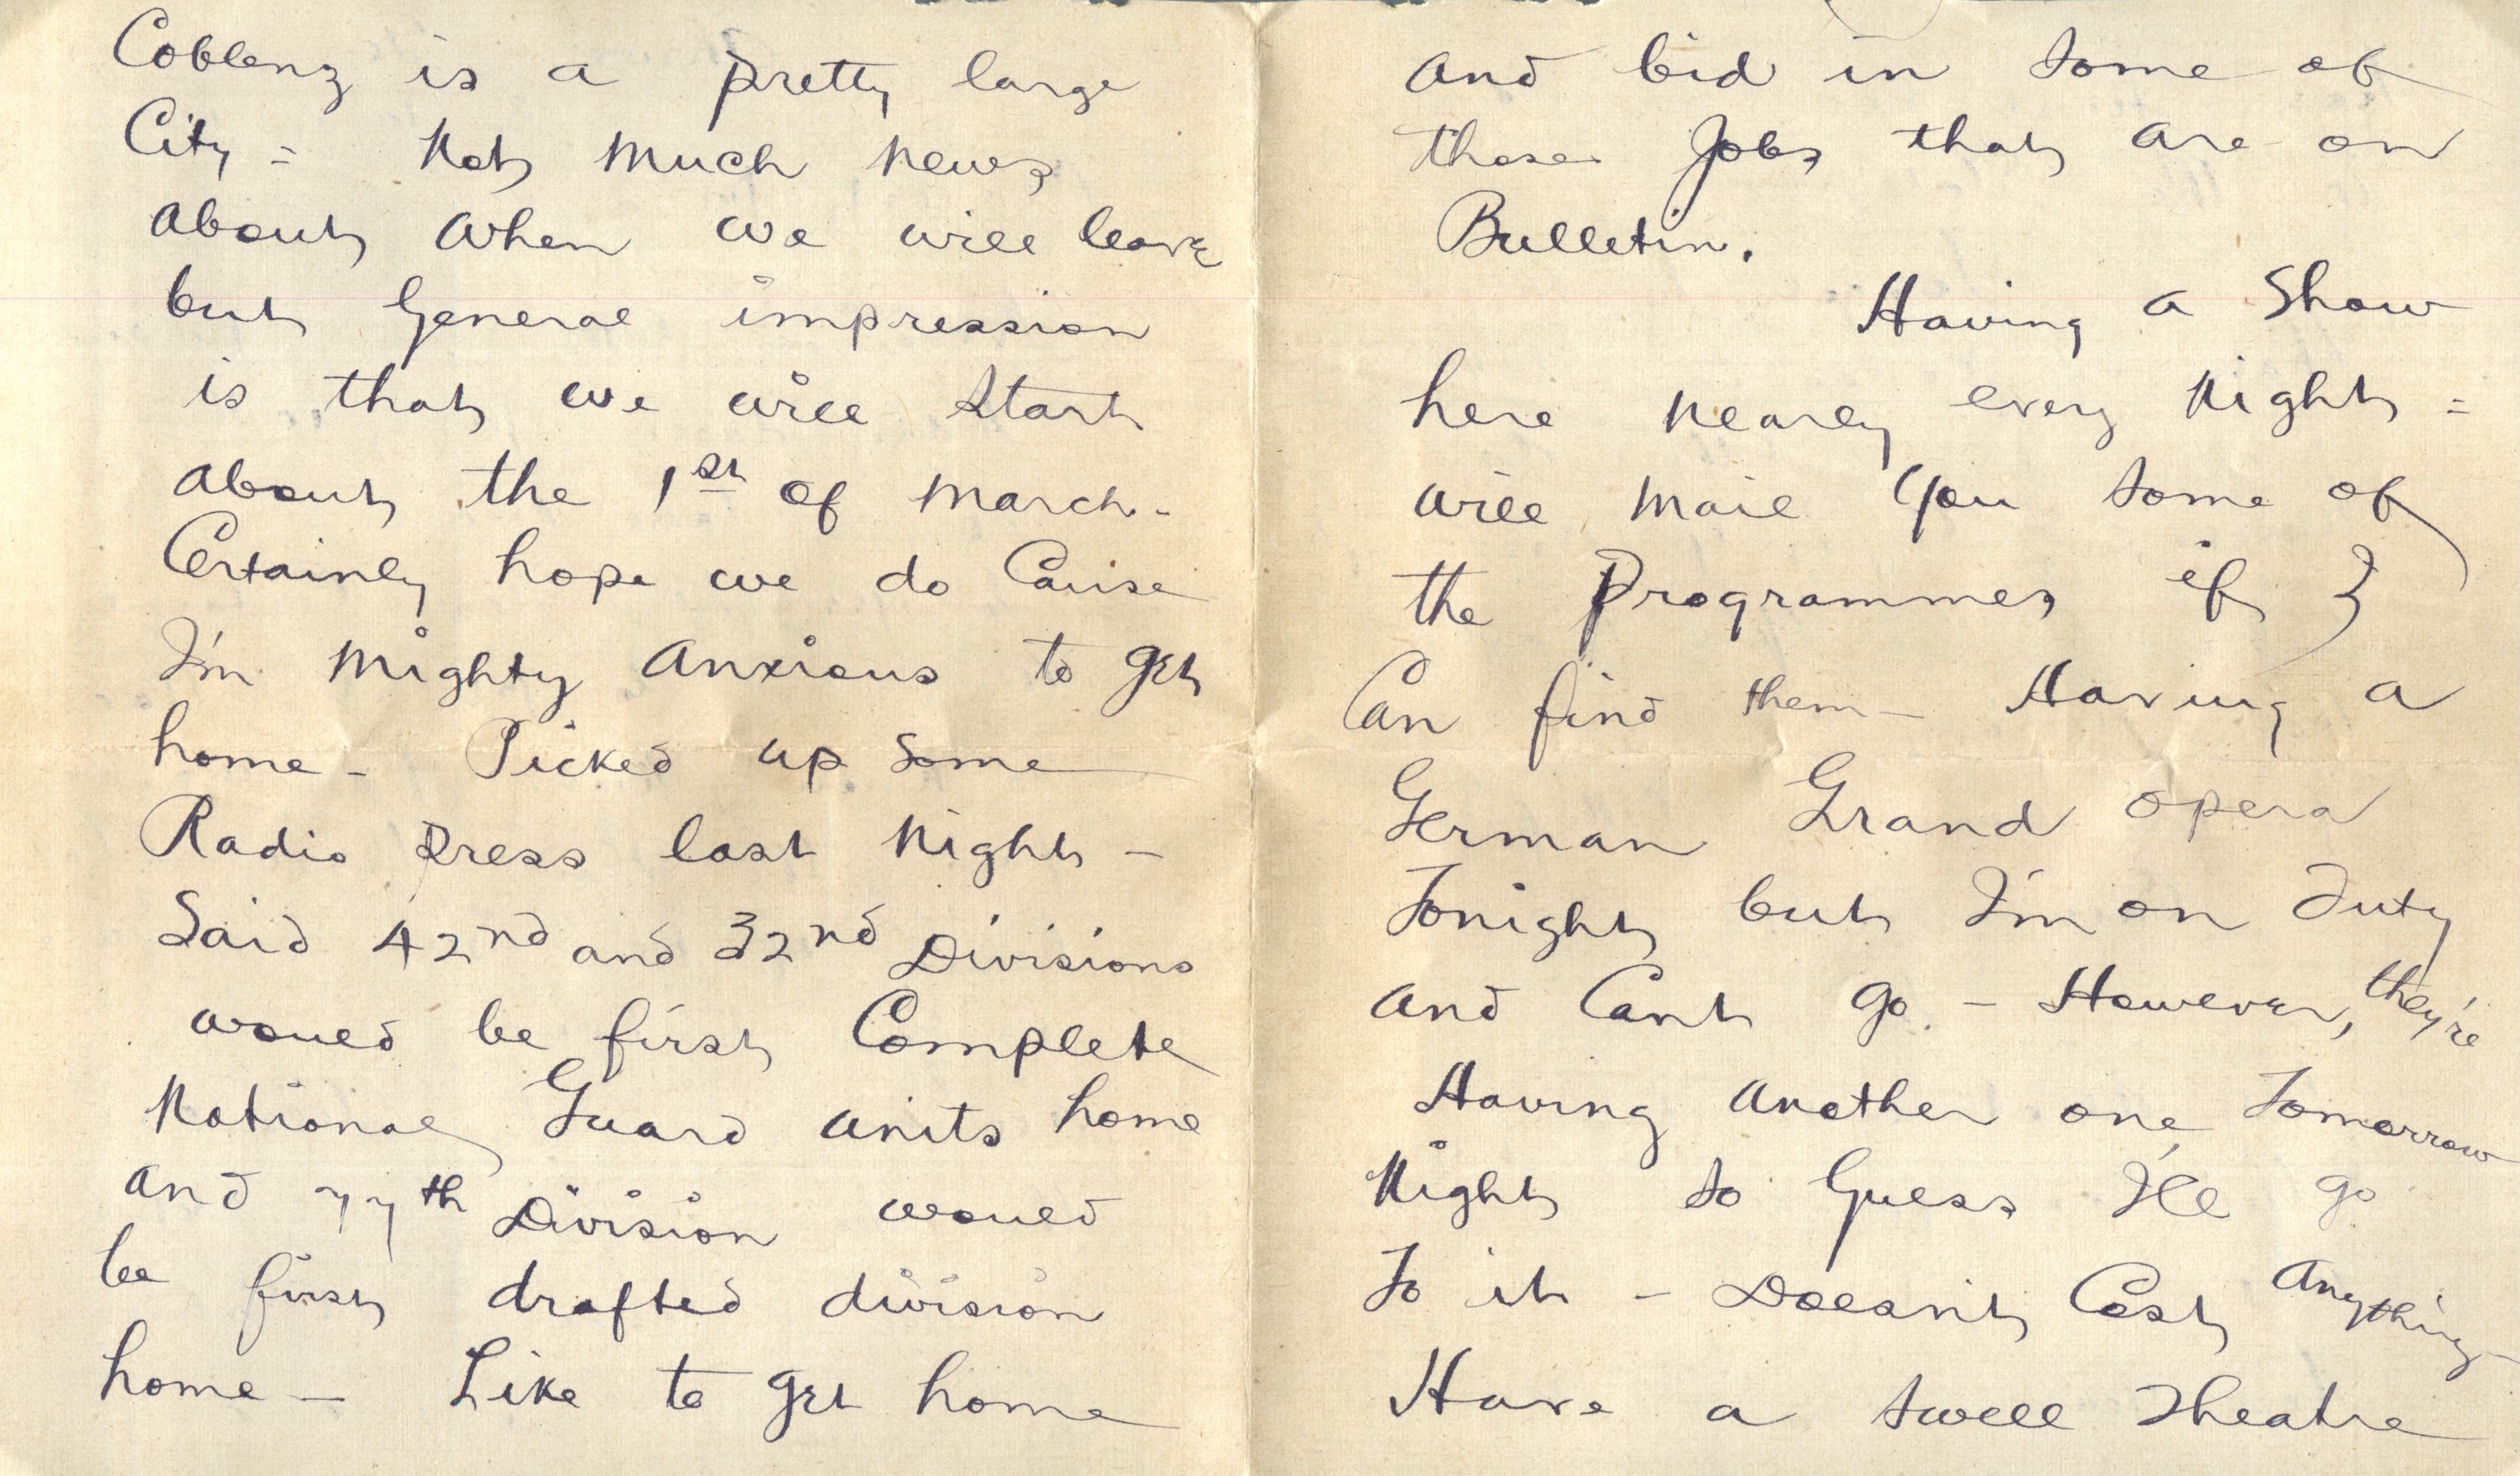 Coblenz is a pretty large
City = Not much news
about when we will leave
but General impression
is that we will start
about the 1st of March.-
Certainly hope we do Cause
I'm mighty anxious to get
home - Picked up some
Radio press last night -
Said 42nd and 32nd Divisions
would be first Complete
National Guard units home
and 77th Division would
be first drafted division
home - Like to get home
and bid in some of
those Jobs that are on
Bulletin.
Having a Show
here nearly every night =
will mail you some of
the Programmes if I
Can find them - Having a
German Grand opera
Tonight but I'm on Duty
and Cant go. - However, they're
Having another one Tomorrow
Night so Guess I'll go
To it - Doesn't Cost anything -
Have a swell Theatre